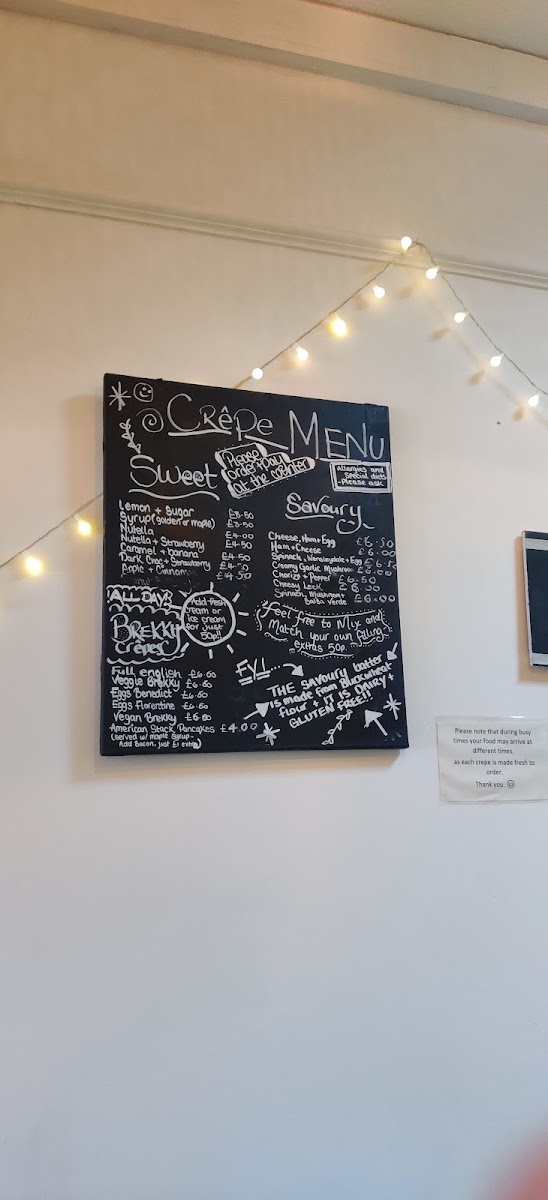 Crêpe Menu
Please
order + pay
at the counter
Allergies and
special diets
- please ask
Sweet
Lemon + Sugar £3.50
Syrup (golden or maple) £3.50
Nutella £4.00
Nutella + Strawberry £4.50
Caramel + banana £4.50
Dark Choc + Strawberry £4.50
Apple + Cinnamon £4.50
Add fresh
cream or
ice cream
for just
50p!!
ALL DAY
BREKKY
Crêpes
Full english £6.60
Veggie Brekky £6.60
Eggs Benedict £6.60
Eggs Florentine £6.60
Vegan Brekky £6.60
American Stack Pancakes £4.00
(served w/ maple syrup -
Add Bacon, just £1 extra)
Savoury
Cheese, Ham + Egg £6.50
Ham + Cheese £6.00
Spinach, Wensleydale + Egg £6.50
Creamy Garlic Mushroom £6.00
Chorizo + Pepper £6.50
Cheesy Leek £6.00
Spinach, Mushroom +
Salsa Verde £6.00
feel free to Mix and
Match your own filling
extras 50p.
F.Y.I...
THE Savoury batter
is made from Buckwheat
flour + IT IS DAIRY +
GLUTEN FREE!!
Please note that during busy
times your food may arrive at
different times,
as each crepe is made fresh to
order.
Thank you. ☺